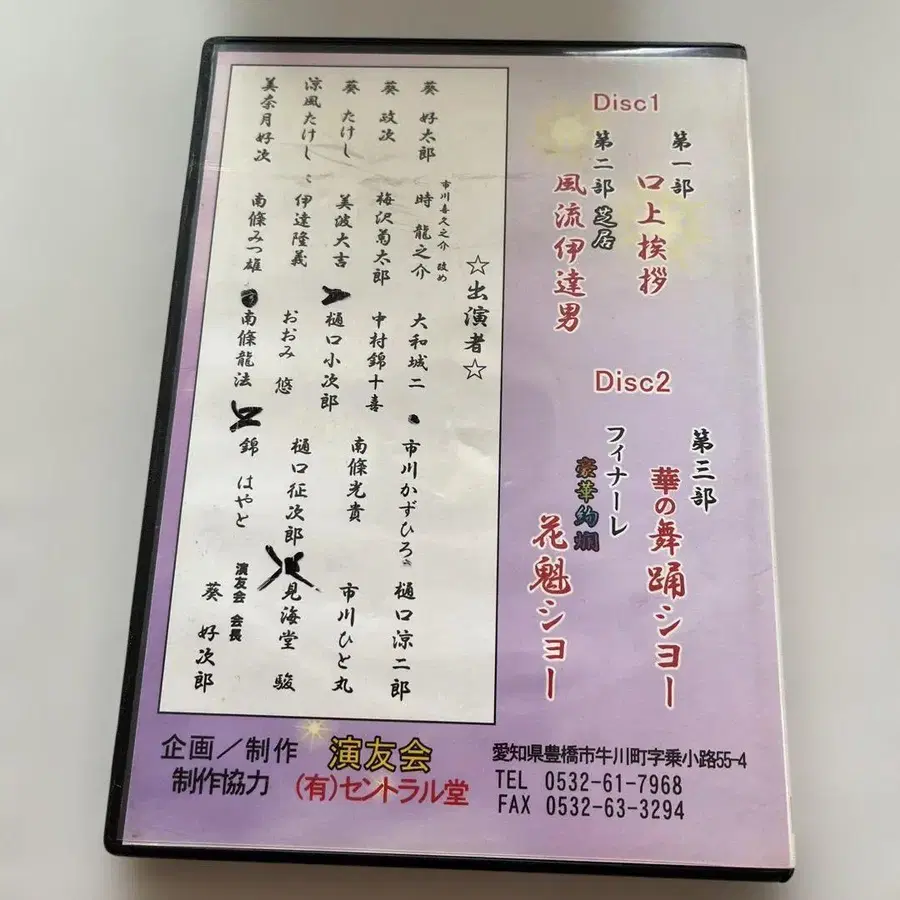 Disc1
第一部
口上挨拶
第二部 芝居
風流伊達男
Disc2
第三部
華の舞踊ショー
フィナーレ
豪華絢爛
花魁ショー
☆出演者☆
葵 好太郎
市川喜久之介 改め
時 龍之介
大和城二
市川かずひろ
樋口涼二郎
葵 政次
梅沢菊太郎
中村錦十喜
南條光貴
市川ひと丸
葵 たけし
美波大吉
樋口小次郎
樋口征次郎
見海堂 駿
涼風たけし
伊達隆義
おおみ 悠
錦 はやと
演友会 会長
葵 好次郎
美奈月好次
南條みつ雄
南條龍法
企画/制作 演友会
制作協力 (有)セントラル堂
愛知県豊橋市牛川町字乗小路55-4
TEL 0532-61-7968
FAX 0532-63-3294